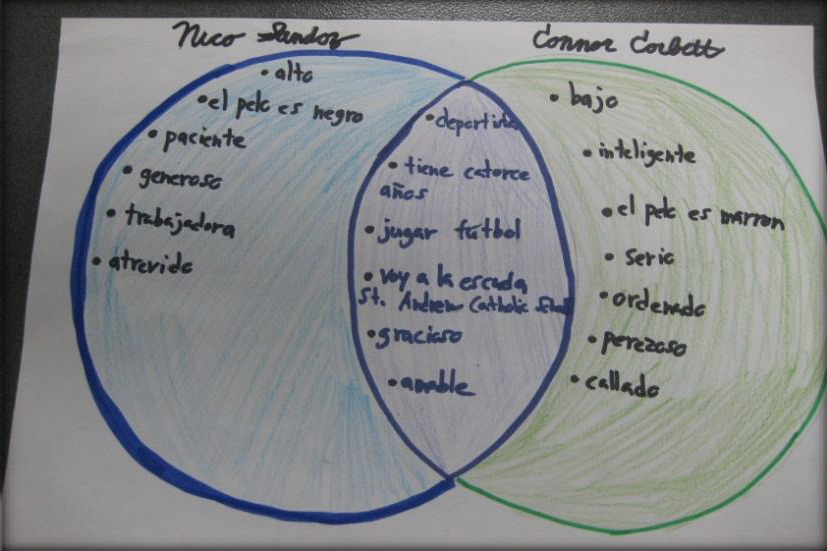 Nico Sandoz
Connor Corbett
• alto
• el pelo es negro
• paciente
• generoso
• trabajadora
• atrevido
• deportista
• tiene catorce
años
• jugar fútbol
• voy a la escuela
St. Andrew Catholic School
• gracioso
• amable
• bajo
• inteligente
• el pelo es marron
• serio
• ordenado
• perezoso
• callado